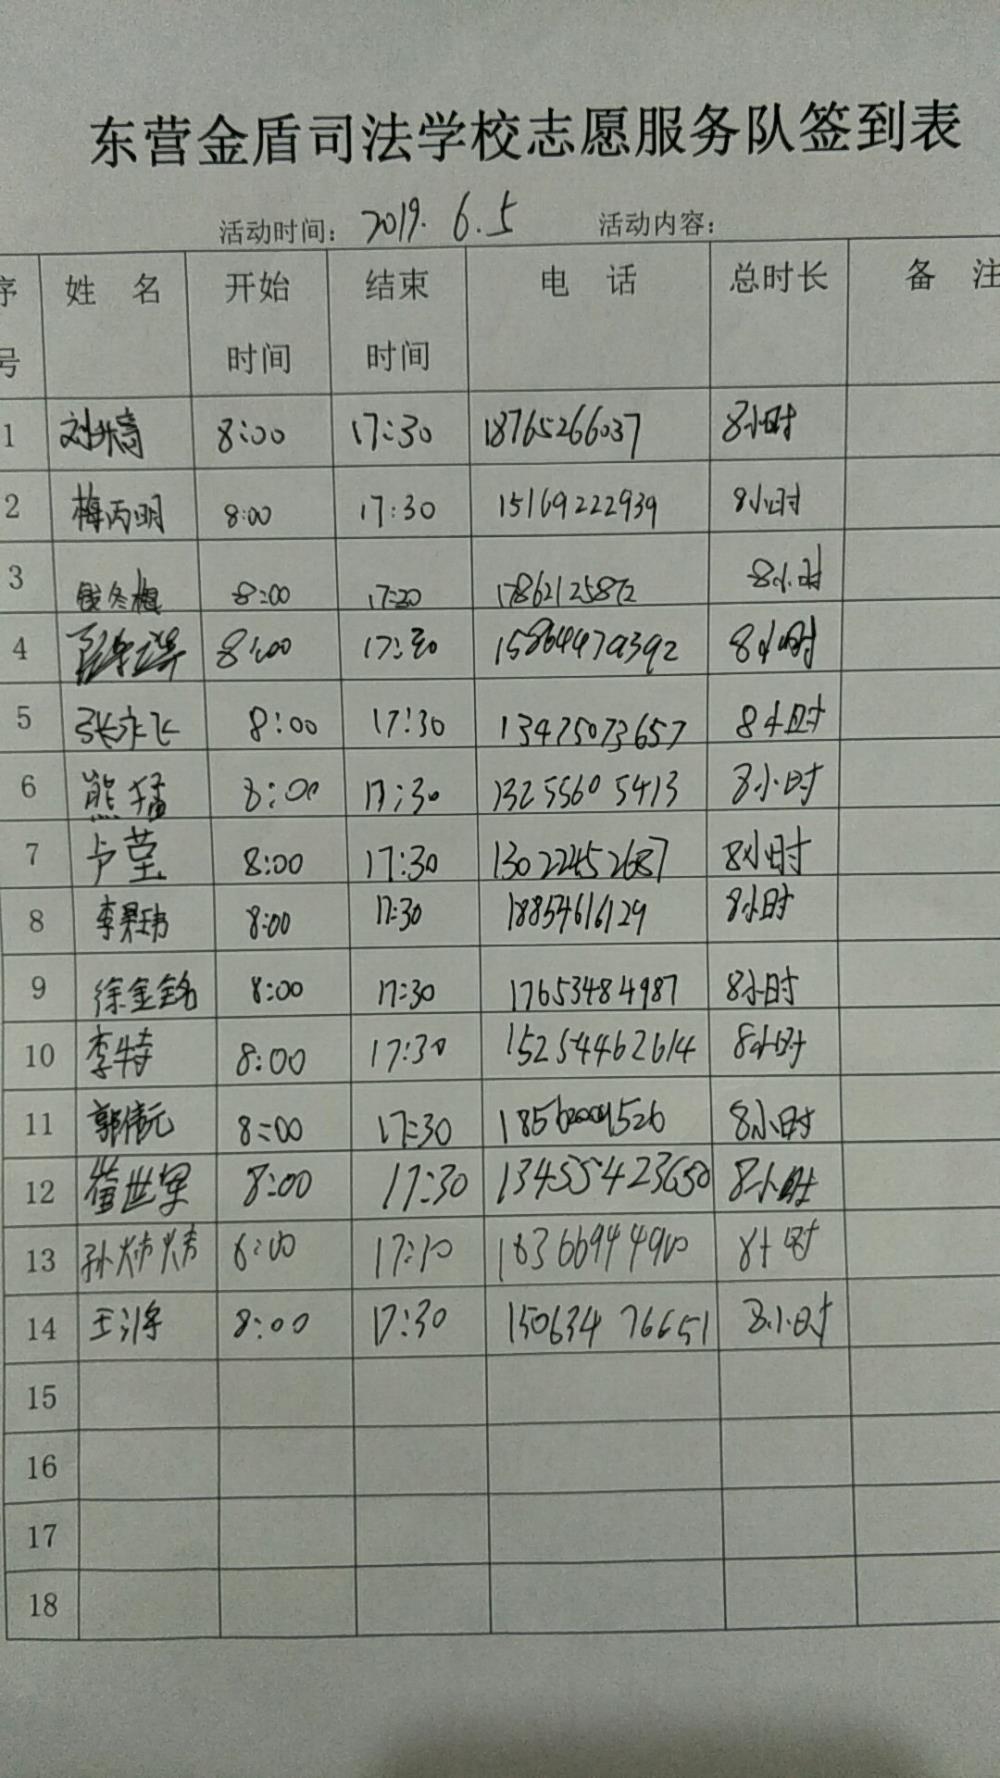 东营金盾司法学校志愿服务队签到表
活动时间: 2019. 6. 5 活动内容:
序号 姓 名 开始时间 结束时间 电 话 总时长 备 注
1 8:00 17:30 18765266037 8小时
2 梅丙明 8:00 17:30 15169222939 8小时
3 钱冬梅 8:00 17:30 8小时
4 8:00 17:30 15864479392 8小时
5 张永飞 8:00 17:30 13475073657 8小时
6 熊猛 8:00 17:30 13255605413 8小时
7 卢莹 8:00 17:30 13022452687 8小时
8 8:00 17:30 18854616129 8小时
9 徐金铭 8:00 17:30 17653484987 8小时
10 李特 8:00 17:30 15254462614 8小时
11 郭伟元 8:00 17:30 8小时
12 8:00 17:30 13455423650 8小时
13 孙炜炜 8:00 17:30 8小时
14 8:00 17:30 15063476651 8小时
15
16
17
18